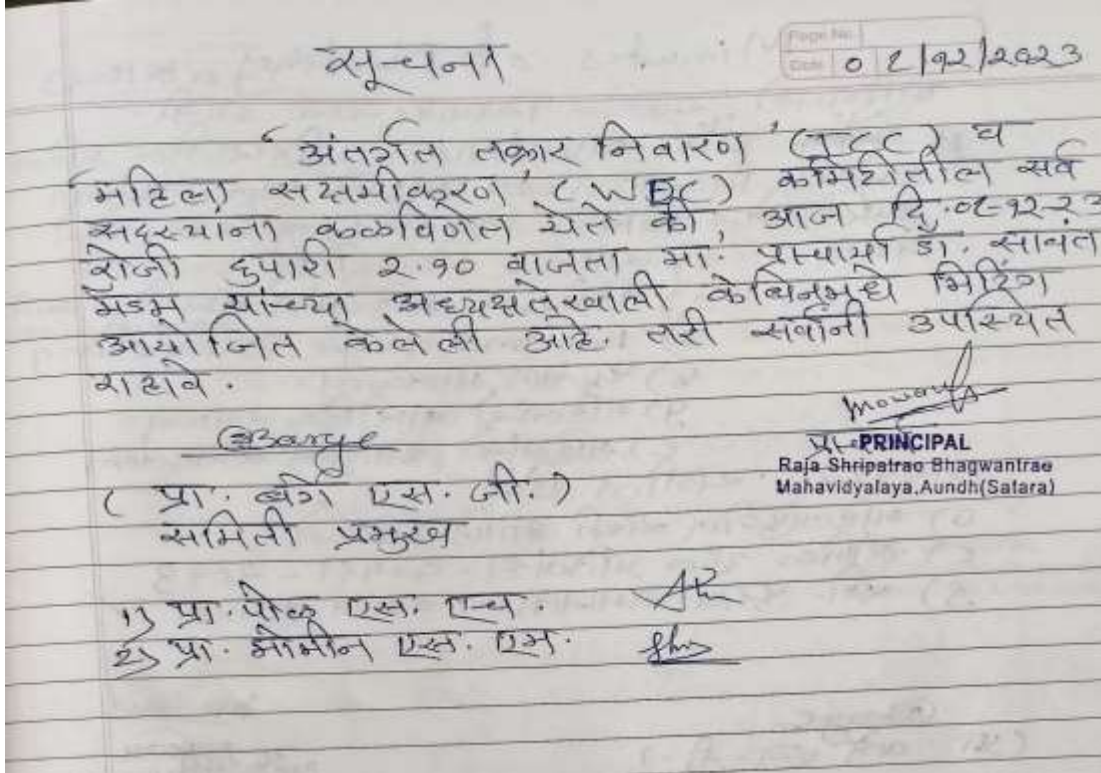 सूचना
Page No.
Date 08/12/2023
'अंतर्गत तक्रार निवारण' (ICC) व
'महिला सक्षमीकरण' (WEC) कमिटीतील सर्व
सदस्यांना कळविणेत येते की, आज दि.०८-१२-२३
रोजी दुपारी २.१० वाजता मा. प्राचार्या डॉ. सावंत
मॅडम यांच्या अध्यक्षतेखाली केबिनमधे मिटिंग
आयोजित केलेली आहे. तरी सर्वांनी उपस्थित
रहावे.
SBarge
(प्रा. बर्गे एस. जी.)
समिती प्रमुख
PRINCIPAL
Raja Shripatrao Bhagwantrao
Mahavidyalaya,Aundh(Satara)
1) प्रा. पोळ एस. एच.
2) प्रा. मोमीन एस. एम.